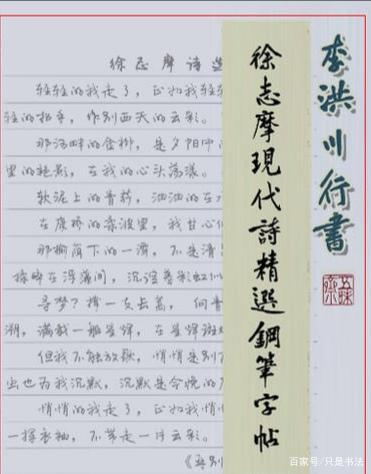 李洪川行書
徐志摩現代詩精選鋼筆字帖
徐志摩诗选
轻轻的我走了，正如我轻轻
轻的招手，作别西天的云彩。
那河畔的金柳，是夕阳中
里的艳影，在我的心头荡漾。
软泥上的青荇，油油的在
在康桥的柔波里，我甘心
那榆荫下的一潭，不是清
揉碎在浮藻间，沉淀着彩虹
寻梦？撑一支长篙，向青
溯，满载一船星辉，在星辉斑
但我不能放歌，悄悄是别
虫也为我沉默，沉默是今晚的
悄悄的我走了，正如我悄
一挥衣袖，不带走一片云彩。
《再别
百家号/只是书法